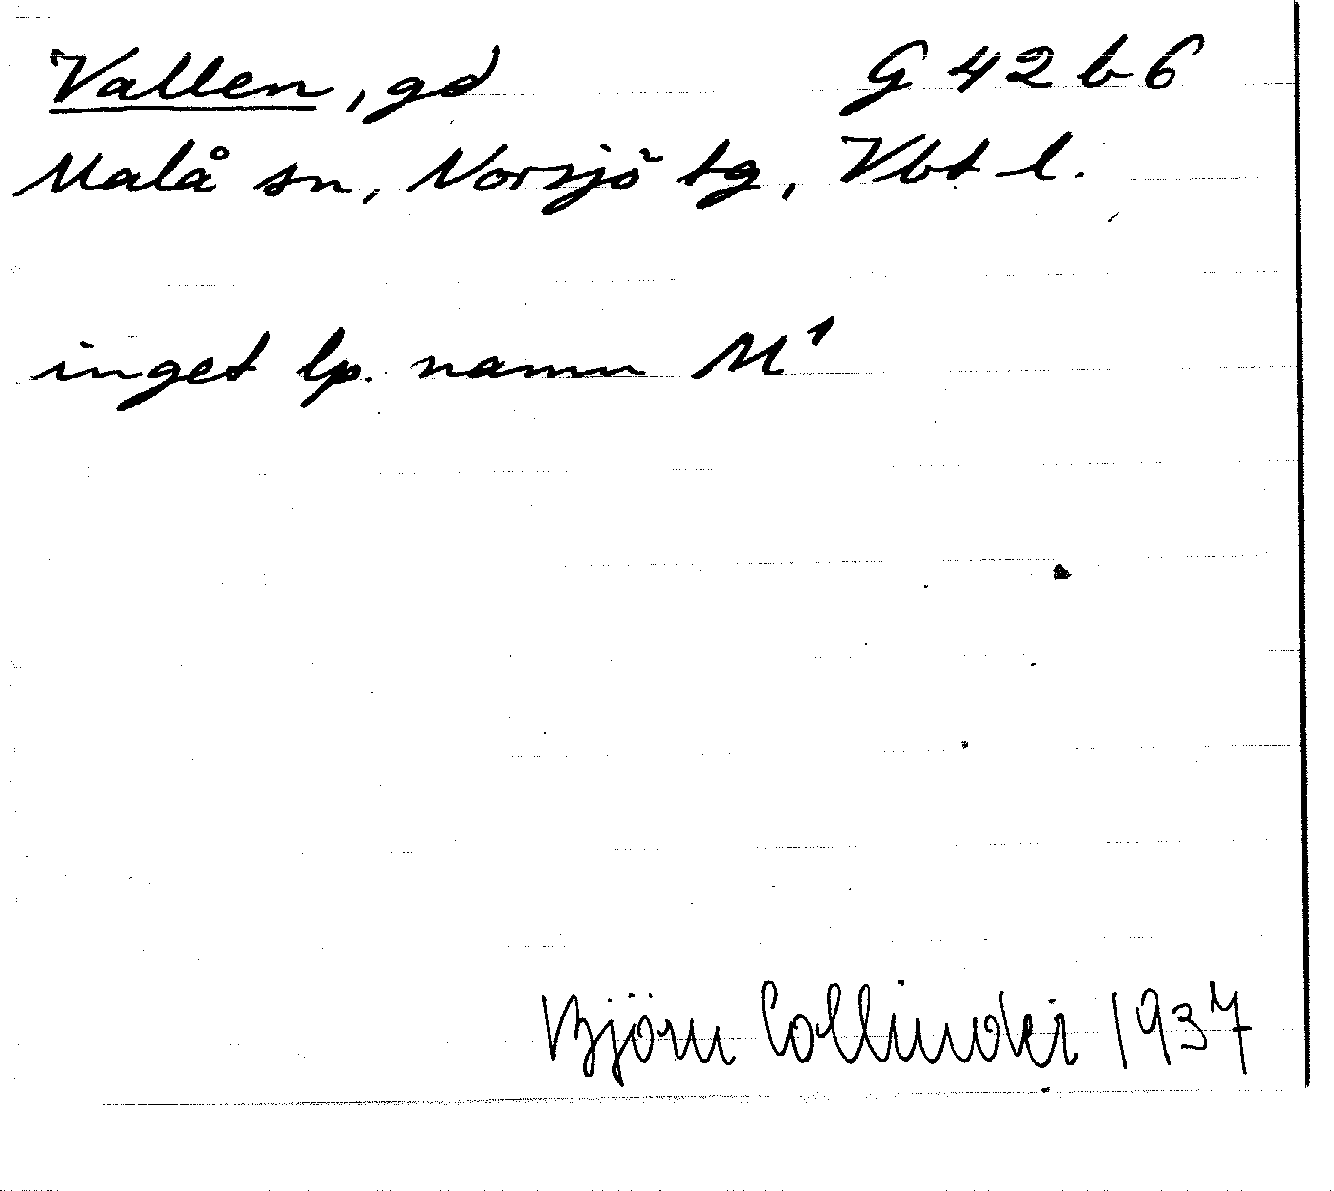 Vallen, gd G 42 b 6
Malå sn, Norsjö tg, Vbt l.
inget lp. namn M¹
Björn Collinder 1937